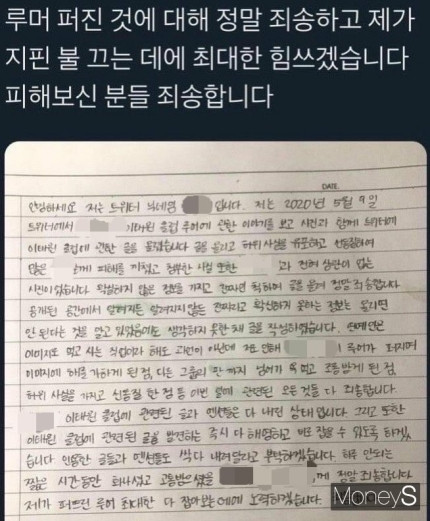 루머 퍼진 것에 대해 정말 죄송하고 제가
지핀 불 끄는 데에 최대한 힘쓰겠습니다
피해보신 분들 죄송합니다
DATE
안녕하세요 저는 트위터 닉네임 입니다. 저는 2020년 5월 9일
트위터에서 이태원 클럽 루머에 관한 이야기를 보고 사진과 함께 트위터에
이태원 클럽에 관한 글을 올렸습니다 글을 올리고 허위 사실을 유포하고 선동하여
많은 께 피해를 끼쳤고 첨부한 사진 또한 과 전혀 상관이 없는
사진이었습니다. 확실하지 않은 정보를 가지고 글을 올려 정말 죄송합니다
공개된 공간에서 알려지지 않은 진짜라고 확신하지 못하는 정보는 올리면
안 된다는 것을 알고 있었음에도 생각하지 못한 채 글을 작성하였습니다. 연예인은
이미지로 먹고 사는 직업이라 해도 과언이 아닌데 저로 인해 루머가 퍼지며
이미지에 해를 가하게 된 점, 다른 그룹의 팬 까지 넘어가 욕 먹고 고통받게 된 점,
허위 사실을 가지고 선동질 한 점 등 이번 일에 관련된 모든 것들 다 죄송합니다.
이태원 클럽에 관련된 글과 멘션들은 다 내린 상태입니다. 그리고 또한
이태원 클럽에 관련된 글을 발견하는 즉시 다 해명하고 바로 잡을 수 있도록 하겠
습니다 인용한 글들과 멘션들도 싹 다 내려달라고 부탁하겠습니다. 하루 안되는
짧은 시간동안 화나셨고 고통받으셨을 께 정말 죄송합니다
제가 퍼뜨린 루머 최대한 다 잡아보는 데에 노력하겠습니다
MoneyS